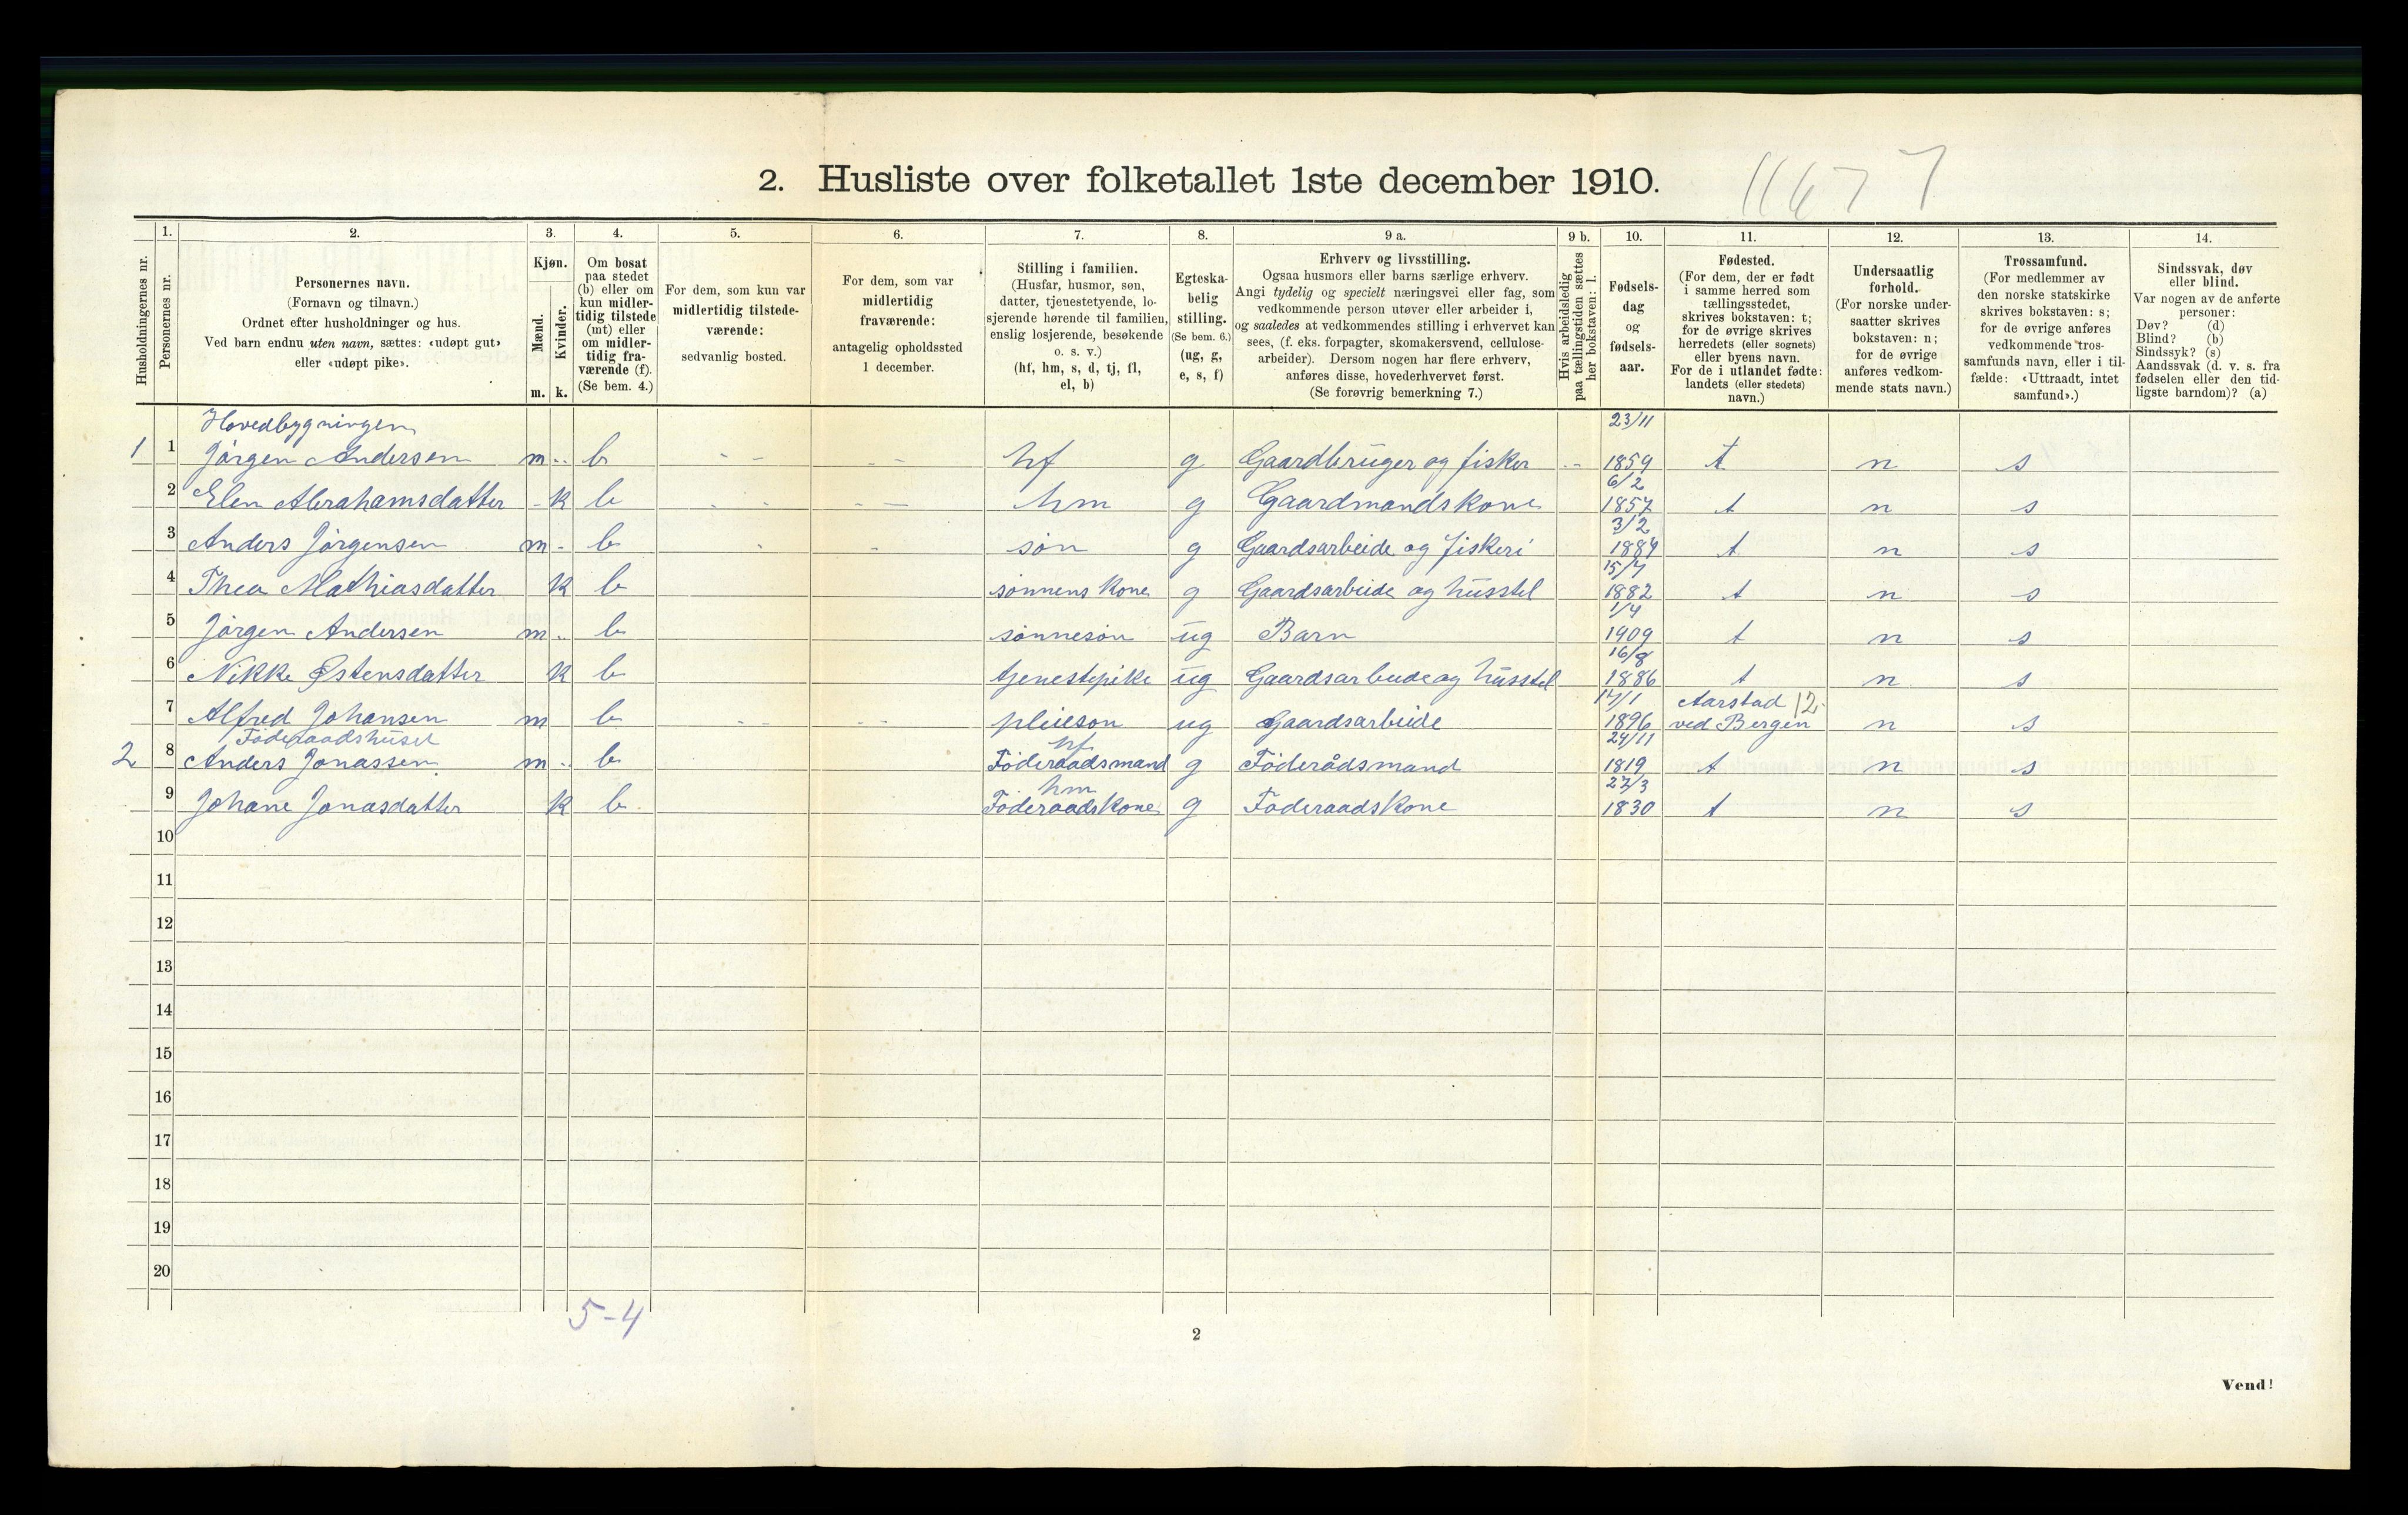 2. Husliste over folketallet 1ste december 1910.
1. 2. 3. 4. 5. 6. 7. 8. 9 a. 9 b. 10. 11. 12. 13. 14.
Husholdningernes nr.
Personernes nr.
Personernes navn.
(Fornavn og tilnavn.)
Ordnet efter husholdninger og hus.
Ved barn endnu uten navn, sættes: «udøpt gut»
eller «udøpt pike».
Kjøn.
Mænd.
Kvinder.
m. k.
Om bosat
paa stedet
(b) eller om
kun midler-
tidig tilstede
(mt) eller
om midler-
tidig fra-
værende (f).
(Se bem. 4.)
For dem, som kun var
midlertidig tilstede-
værende:
sedvanlig bosted.
For dem, som var
midlertidig
fraværende:
antagelig opholdssted
1 december.
Stilling i familien.
(Husfar, husmor, søn,
datter, tjenestetyende, lo-
sjerende hørende til familien,
enslig losjerende, besøkende
o. s. v.)
(hf, hm, s, d, tj, fl,
el, b)
Egteska-
belig
stilling.
(Se bem. 6.)
(ug, g,
e, s, f)
Erhverv og livsstilling.
Ogsaa husmors eller barns særlige erhverv.
Angi tydelig og specielt næringsvei eller fag, som
vedkommende person utøver eller arbeider i,
og saaledes at vedkommendes stilling i erhvervet kan
sees, (f. eks. forpagter, skomakersvend, cellulose-
arbeider). Dersom nogen har flere erhverv,
anføres disse, hovederhvervet først.
(Se forøvrig bemerkning 7.)
Hvis arbeidsledig
paa tællingstiden sættes
her bokstaven: l.
Fødsels-
dag
og
fødsels-
aar.
Fødested.
(For dem, der er født
i samme herred som
tællingsstedet,
skrives bokstaven: t;
for de øvrige skrives
herredets (eller sognets)
eller byens navn.
For de i utlandet fødte:
landets (eller stedets)
navn.)
Undersaatlig
forhold.
(For norske under-
saatter skrives
bokstaven: n;
for de øvrige
anføres vedkom-
mende stats navn.)
Trossamfund.
(For medlemmer av
den norske statskirke
skrives bokstaven: s;
for de øvrige anføres
vedkommende tros-
samfunds navn, eller i til-
fælde: «Uttraadt, intet
samfund».)
Sindssvak, døv
eller blind.
Var nogen av de anførte
personer:
Døv? (d)
Blind? (b)
Sindssyk? (s)
Aandssvak (d. v. s. fra
fødselen eller den tid-
ligste barndom)? (a)
Hovedbygningen 23/11
1 1 Jörgen Andersen m b hf g Gaardbruger og fisker 1859 t n s
6/2
2 Elen Abrahamsdatter k b hm g Gaardmandskone 1857 t n s
3/2
3 Anders Jörgensen m b søn g Gaardsarbeide og fiskeri 1884 t n s
4 Thea Mathiasdatter k b sønnens kone g Gaardsarbeide og husstel 1882 t n s
1/4
5 Jörgen Andersen m b sønnesøn ug Barn 1909 t n s
16/8
6 Nikke Østensdatter k b tjenestepike ug Gaardsarbeide og husstel 1886 t n s
Aarstad 12
7 Alfred Johansen m b pleieson ug Gaardsarbeide 1896 ved Bergen n s
Föderaadshuset hf 24/11
2 8 Anders Jonassen m b Föderaadsmand g Föderådsmand 1819 t n s
hm 27/3
9 Johane Jonasdatter k b Föderaadskone g Föderaadskone 1830 t n s
10
11
12
13
14
15
16
17
18
19
20
5-4
2
Vend!